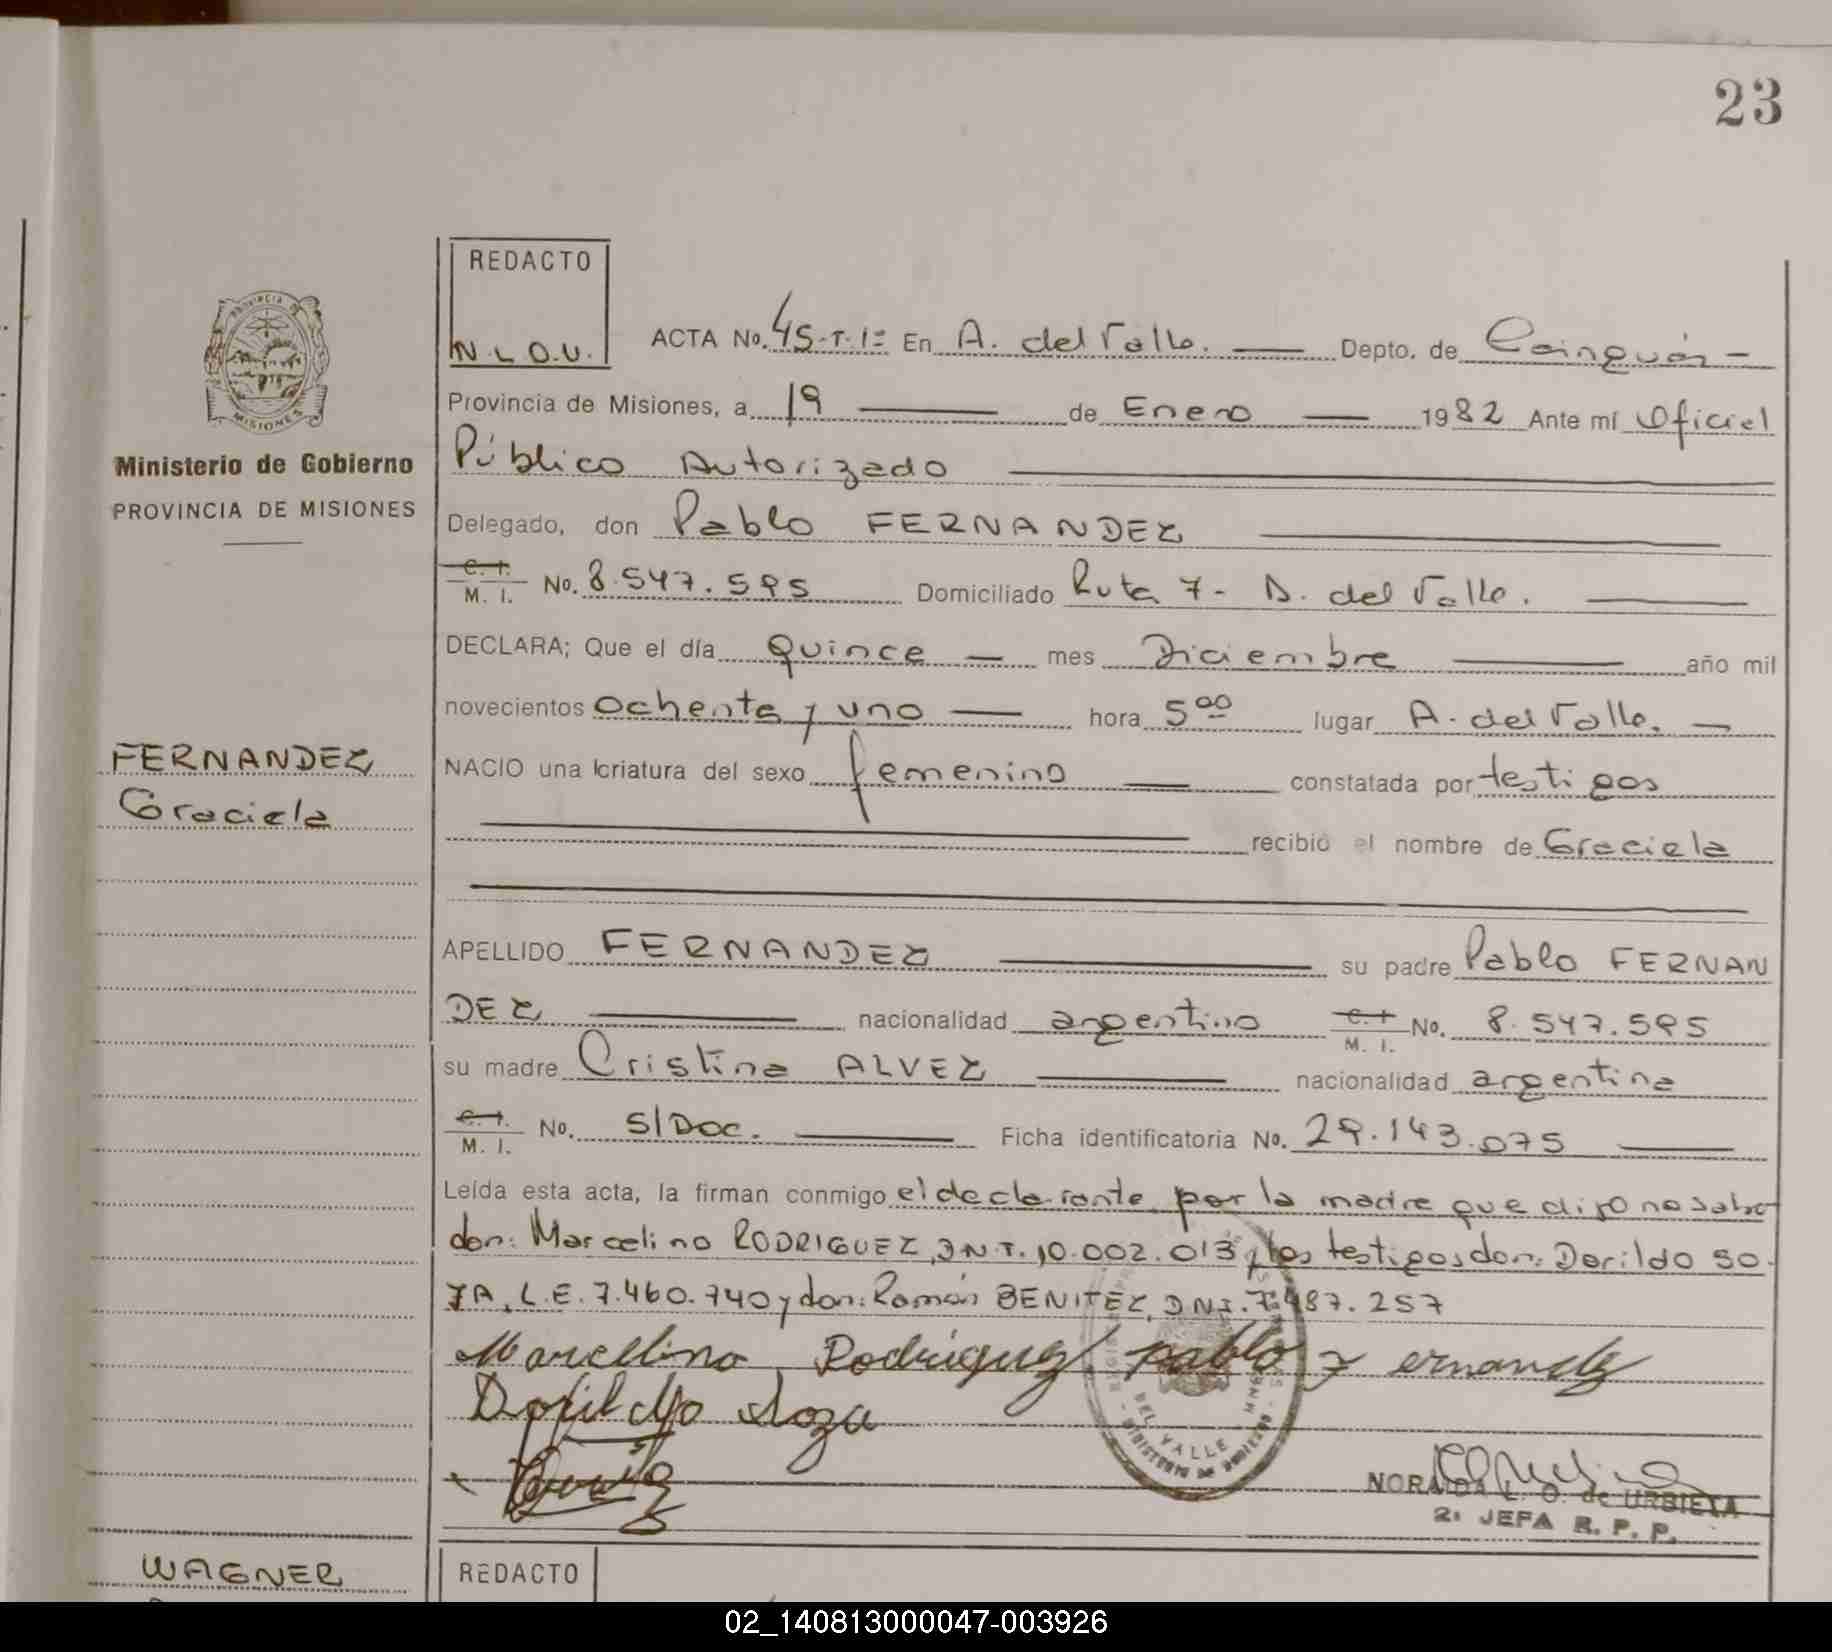 23
REDACTO
N.L.O.U.
ACTA No. 45-T.1= En A. del Valle. Depto. de Cainguás
Provincia de Misiones, a 19 de Enero 1982 Ante mí Oficial
Público Autorizado
Ministerio de Gobierno
PROVINCIA DE MISIONES
Delegado, don Pablo FERNANDEZ
C. I. M. I. No. 8.547.595 Domiciliado Ruta 7- A. del Valle.
DECLARA; Que el día quince mes Diciembre año mil
novecientos ochenta y uno hora 5 00 lugar A. del Valle.
FERNANDEZ
Graciela
NACIO una criatura del sexo femenino constatada por testigos
recibió el nombre de Graciela
APELLIDO FERNANDEZ su padre Pablo FERNAN
DEZ nacionalidad argentino C. I. M. I. No. 8.547.595
su madre Cristina ALVEZ nacionalidad argentina
C. I. M. I. No. S/Doc. Ficha identificatoria No. 29.143.075
Leída esta acta, la firman conmigo el declarante, por la madre que dijo no saber
don: Marcelino RODRIGUEZ, D.N.I. 10.002.013 y los testigos don: Dorildo SO
ZA, L.E. 7.460.740 y don: Ramón BENITEZ, DNI. 7.487.257
Marcellino Rodriguez Pablo Fernandez
Dorildo Soza
DEL VALLE
MISIONES
NORAIDA L. O. de URBIETA
2: JEFA R. P. P.
WAGNER
REDACTO
02_140813000047-003926